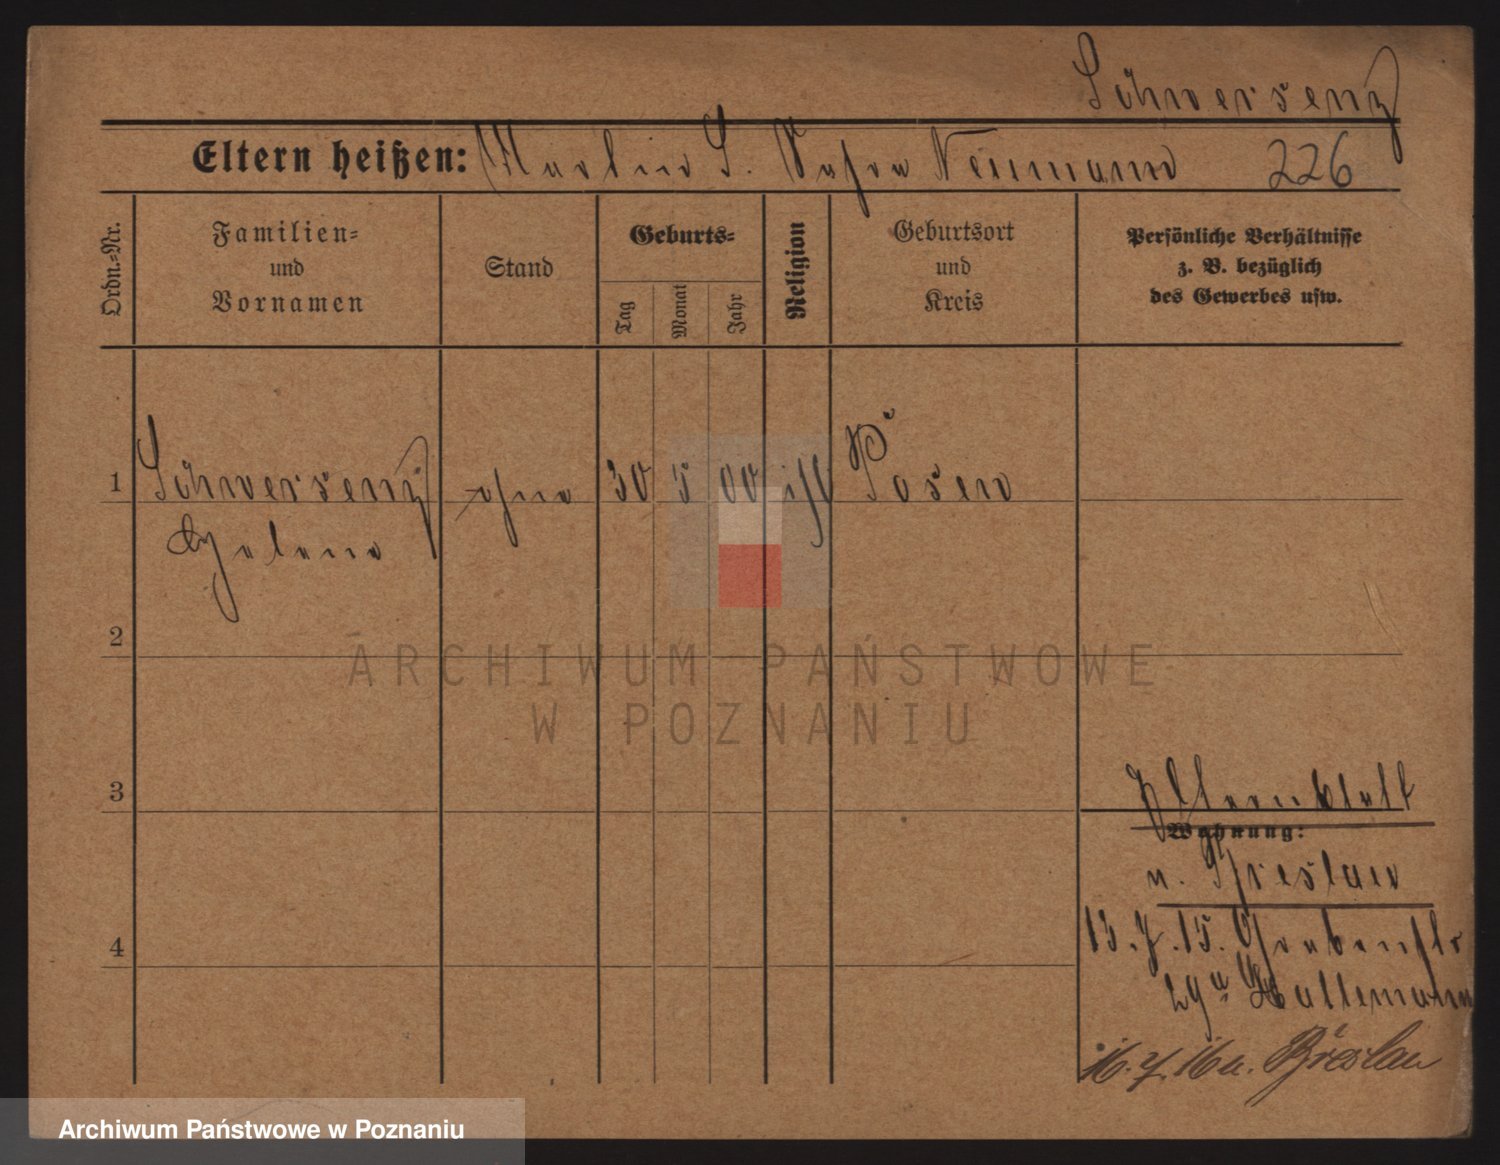 Schwersenz
Eltern heißen: Martin S. Neumann 226
Ordn.=Nr.
Familien=
und
Vornamen
Stand
Geburts=
Tag
Monat
Jahr
Religion
Geburtsort
und
Kreis
Persönliche Verhältnisse
z. B. bezüglich
des Gewerbes usw.
1 Schwersenz ohne 30 5 00 isr Posen
Helene
2
ARCHIWUM PAŃSTWOWE
W POZNANIU
3
Elternblatt
Wohnung:
n. Breslau
13.7.15. Grabenstr
29a Kallemann
4
16.7.16 n. Breslau
Archiwum Państwowe w Poznaniu